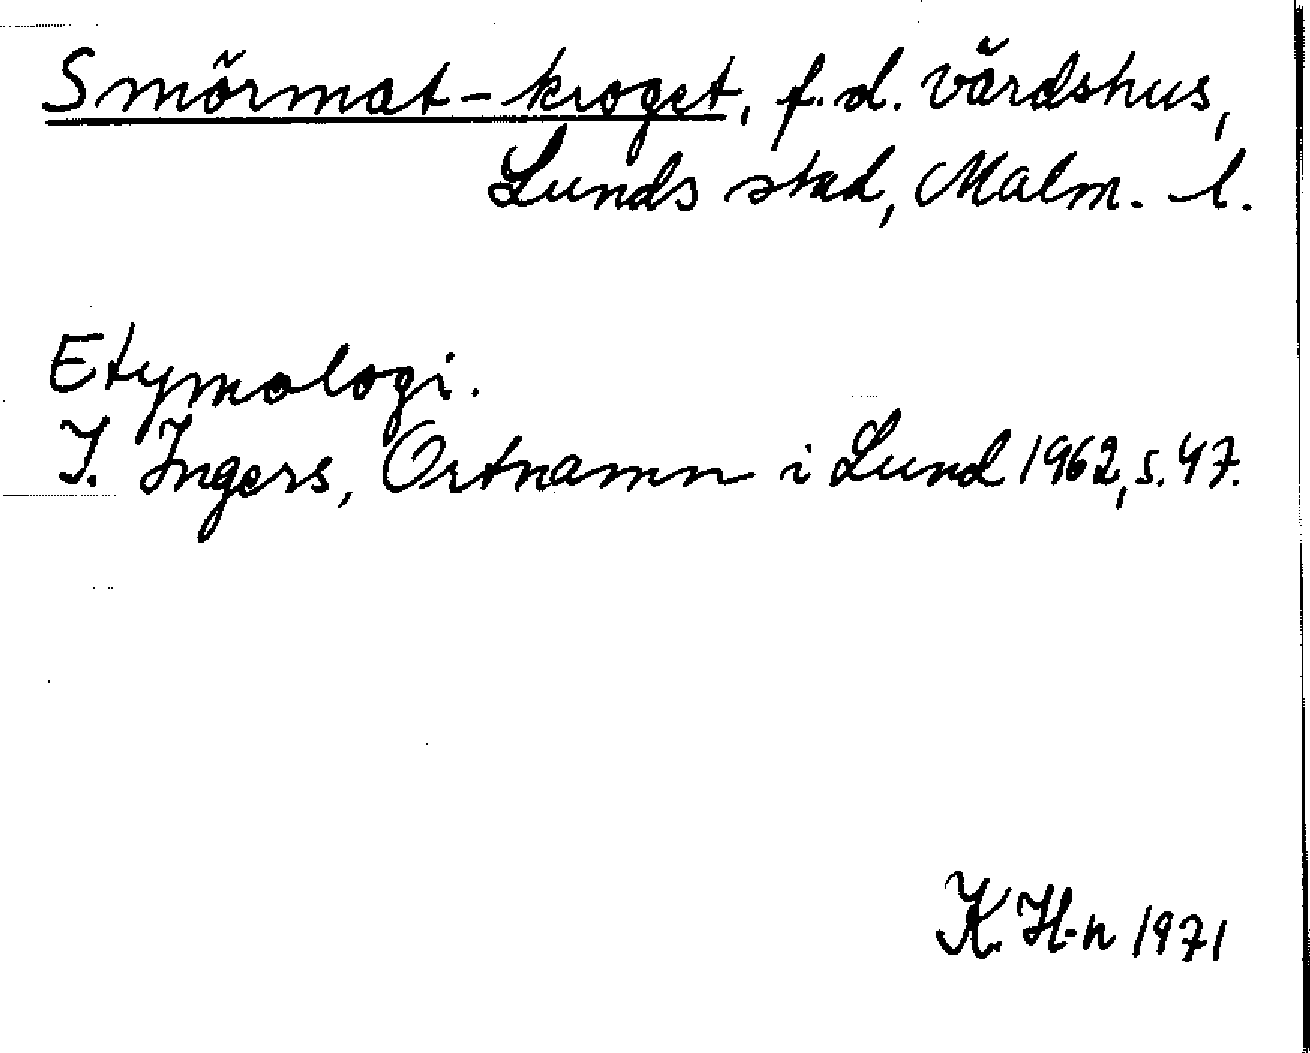 Smörmat-kroget, f.d. värdshus,
Lunds stad, Malm. l.
Etymologi.
I. Ingers, Ortnamn i Lund 1962, s. 47.
K. H-n 1971